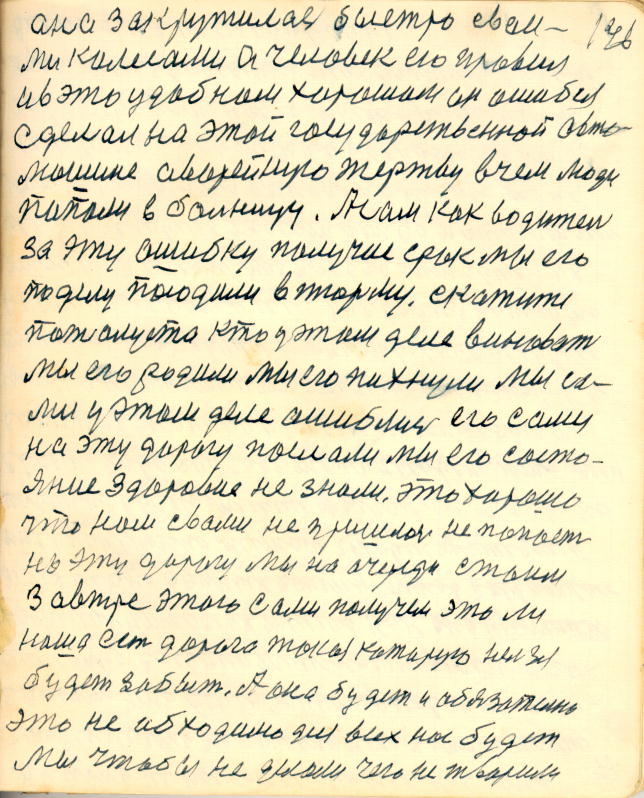 ана закрутилас быстро свои- 146
ми колесами а человек его правил
ив это удобном хорошом он ошибся
сделал на этой государственной авто-
мошине оварейную жертву в чем люди
попали в болницу. А сам как водител
за эту ошибку получае срок мы его
поделу посодили в тюрму. скажите
пожалуста кто у этом деле виноват
мы его родили мы его пихнули мы са-
ми у этом деле ошиблис его сами
на эту дорогу послали мы его состо-
яние здоровие не знали. это хорошо
что нам свами не пришлос не попаст
на эту дорогу мы на очереди стоим
Завтре этого сами получем это ли
наша ест дорога такая каторую нелзя
будет забыт. А она будет и обязателно
это не обходимо для всех нас будет
мы чтобы не делали чего не творили